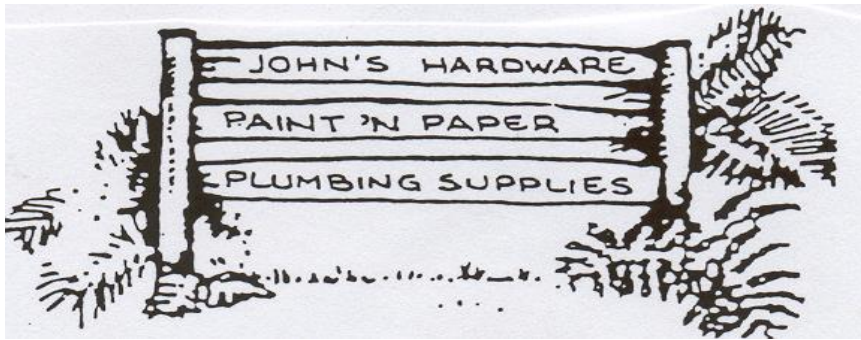 JOHN'S HARDWARE
PAINT 'N PAPER
PLUMBING SUPPLIES